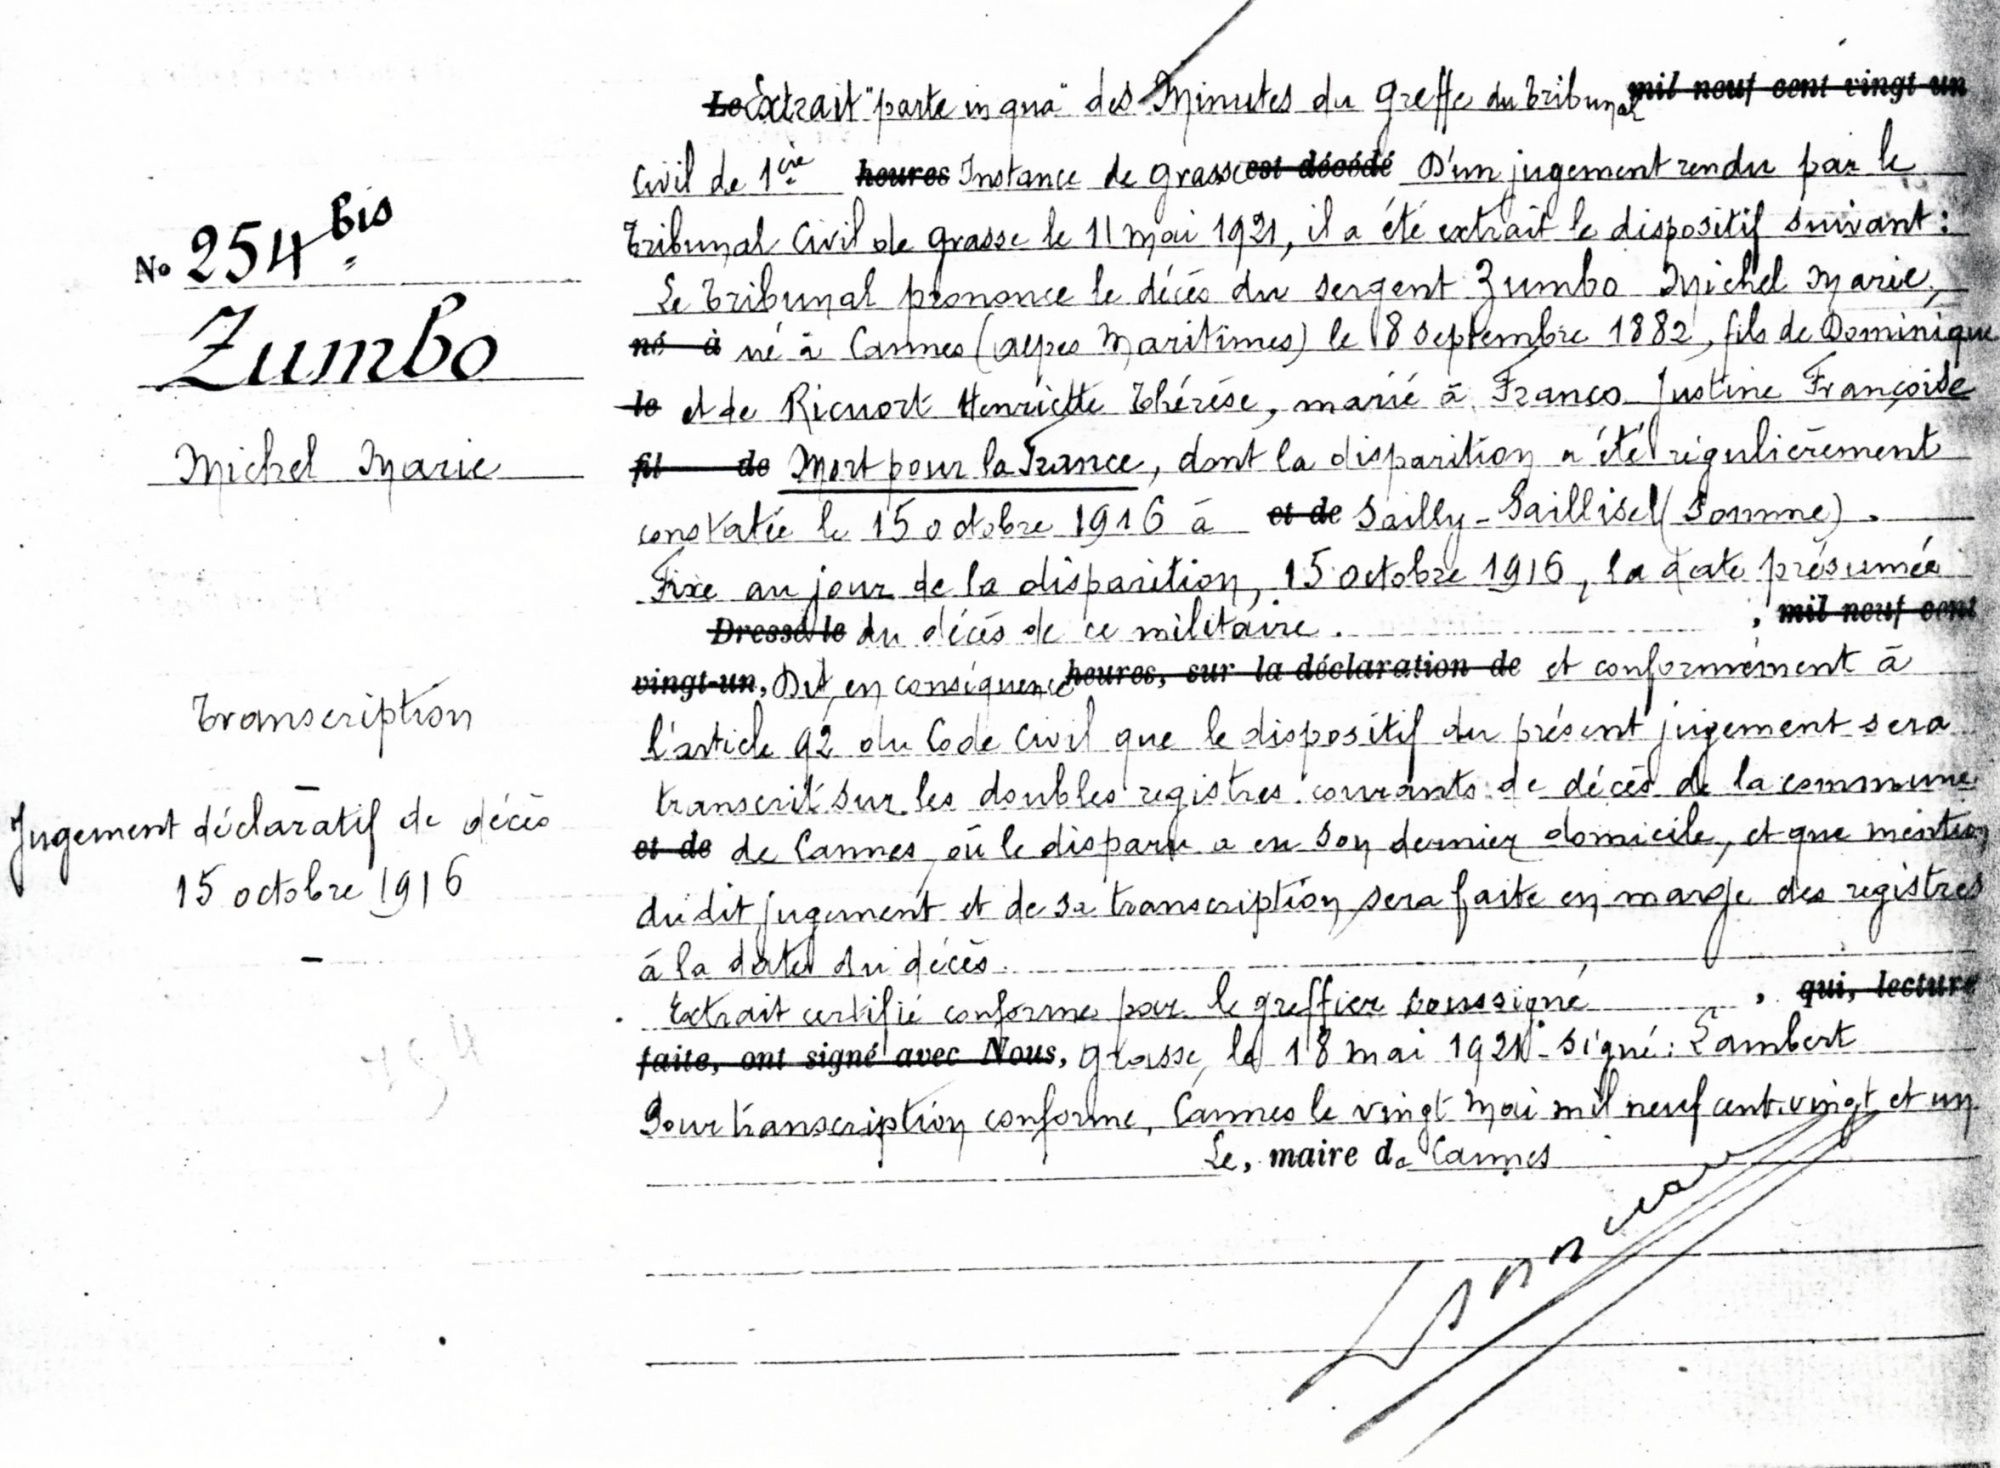 No 254 bis
Zumbo
Michel Marie
Transcription
Jugement déclaratif de décès
15 octobre 1916
Le Extrait "parte in qua" des Minutes du Greffe du Tribunal mil neuf cent vingt-un
Civil de 1ère heures Instance de Grasse est décédé D'un jugement rendu par le
Tribunal Civil de Grasse le 11 mai 1921, il a été extrait le dispositif suivant :
Le Tribunal prononce le décès du sergent Zumbo Michel Marie,
né à né à Cannes (Alpes Maritimes) le 8 septembre 1882, fils de Dominique
le et de Ricuort Henriette Thérèse, marié à Franco Justine Françoise
fil de Mort pour la France, dont la disparition a été régulièrement
constatée le 15 octobre 1916 à et de Sailly-Saillisel (Somme).
Fixe au jour de la disparition, 15 octobre 1916, la date présumée
Dressé le du décès de ce militaire. , mil neuf cent
vingt-un, Dit en conséquence heures, sur la déclaration de et conformément à
l'article 92 du Code Civil que le dispositif du présent jugement sera
transcrit sur les doubles registres courants de décès de la commune
et de de Cannes, où le disparu a eu son dernier domicile, et que mention
du dit jugement et de sa transcription sera faite en marge des registres
à la date du décès.
Extrait certifié conforme par le greffier soussigné , qui, lecture
faite, ont signé avec Nous, Grasse, le 18 mai 1921 - Signé : Lambert
Pour transcription conforme, Cannes le vingt Mai mil neuf cent vingt et un
Le, maire de Cannes